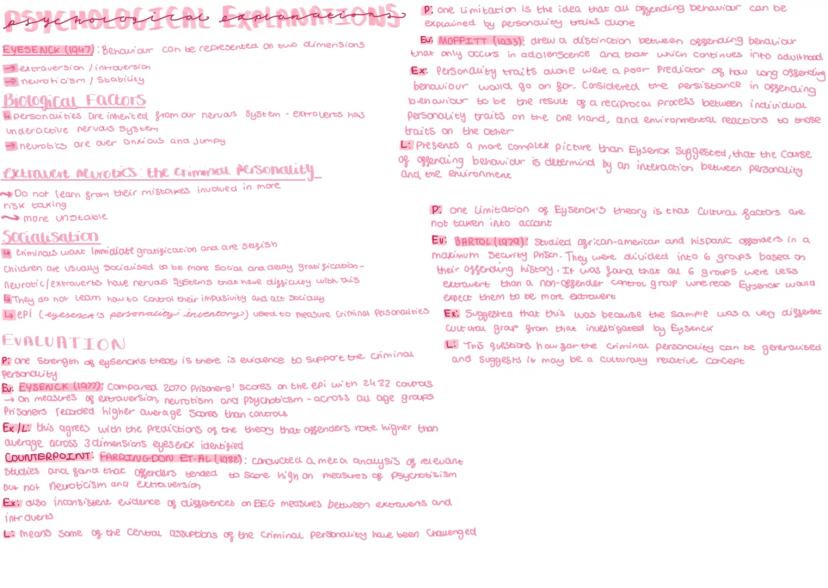 PSYCHOLOGICAL EXPLANATIONS
psychological explanations
EYESENCK (1947): Behaviour can be represented on two dimensions
→ extraversion / introversion
→ neuroticism / Stability
Biological Factors
↳ personalities are inherited from our nervous system - extraverts has
underactive nervous system
→ neurotics are over anxious and jumpy
extravert neurotics the criminal personality
→ Do not learn from their mistakes involved in more
risk taking
→ more unstable
Socialisation
↳ criminals want immidiate gratification and are selfish
children are usually socialised to be more social and delay gratification -
neurotic/extraverts have nervous systems that have difficulty with this
↳ They do not learn how to control their impulsivity and act socially
↳ EPI (eyesenck's personality inventory) used to measure criminal personalities
EVALUATION
P: one strength of eysenck's theory is there is evidence to support the criminal
personality
Ev: EYSENCK (1977): Compared 2070 prisoners' scores on the epi with 2422 controls
→ on measures of extraversion, neurotism and psychoticism - across all age groups
Prisoners recorded higher average scores than controls
Ex/L: this agrees with the predictions of the theory that offenders rate higher than
average across 3 dimensions eysenck identified
COUNTERPOINT: FARRINGDON ET AL (1982): conducted a meta analysis of relevant
studies and found that offenders tended to score high on measures of psychoticism
but not neuroticism and extraversion
Ex: also inconsistent evidence of differences on EEG measures between extraverts and
introverts
L: means some of the central assuptions of the criminal personality have been challenged
P: one limitation is the idea that all offending behaviour can be
explained by personality traits alone
Ev: MOFFITT (1933): drew a distinction between offending behaviour
that only occurs in adolescence and that which continues into adulthood
Ex: Personality traits alone were a poor predictor of how long offending
behaviour would go on for. Considered the persistance in offending
behaviour to be the result of a reciprocal process between individual
personality traits on the one hand, and environmental reactions to those
traits on the other
L: Presents a more complex picture than Eysenck suggested, that the course
of offending behaviour is determind by an interaction between personality
and the environment
P: one limitation of Eysenck's theory is that cultural factors are
not taken into account
Ev: BARTOL (1979): Studied african-american and hispanic offenders in a
maximum security prison. They were divided into 6 groups based on
their offending history. It was found that all 6 groups were less
extravert than a non-offender control group whereas Eysenck would
expect them to be more extravert
Ex: Suggested that this was because the sample was a very different
cultural group from that investigated by Eysenck
L: This questions how far the criminal personality can be generalised
and suggests it may be a culturally relative concept